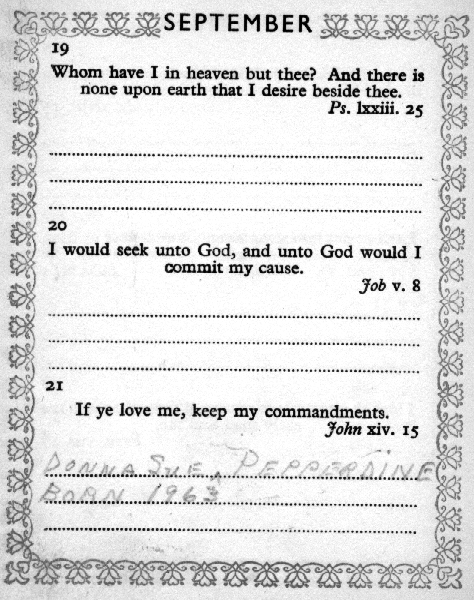 SEPTEMBER
19
Whom have I in heaven but thee? And there is
none upon earth that I desire beside thee.
Ps. lxxiii. 25
20
I would seek unto God, and unto God would I
commit my cause.
Job v. 8
21
If ye love me, keep my commandments.
John xiv. 15
DONNA SUE, PEPPERDINE
BORN 1963